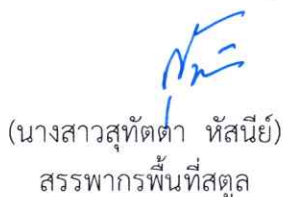 (นางสาวสุทัตตา หัสนีย์)
สรรพากรพื้นที่สตูล